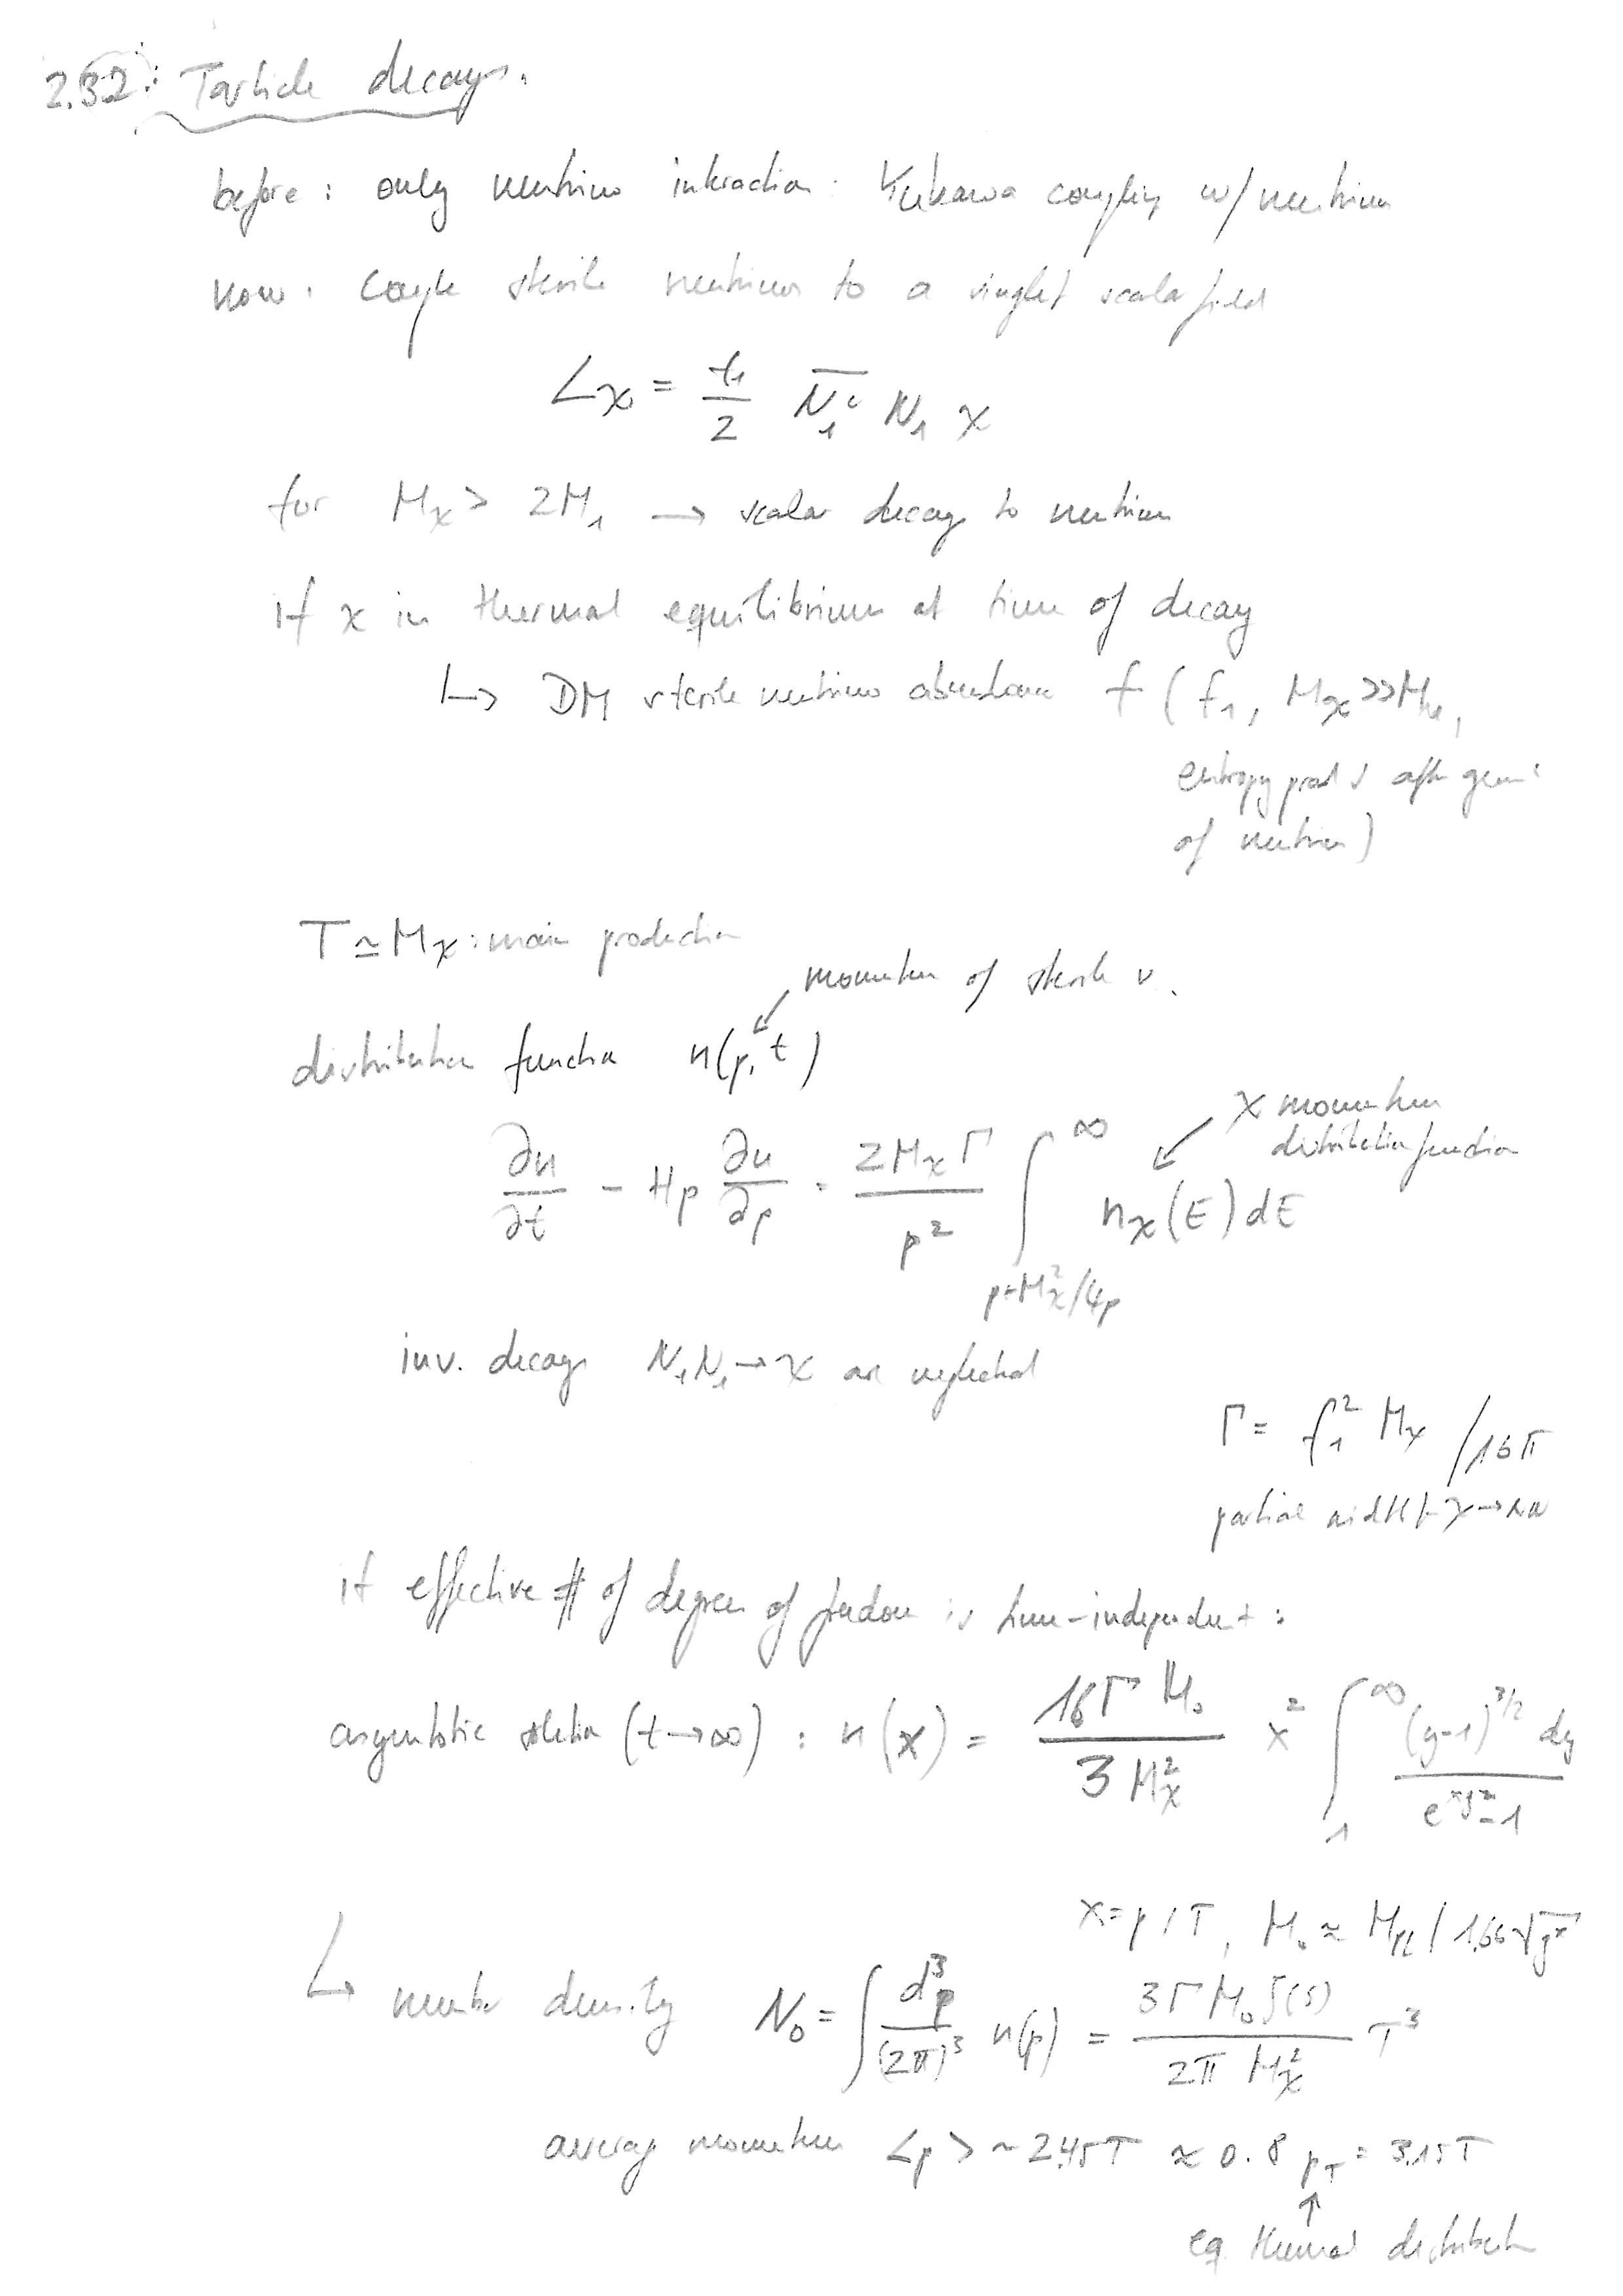 2.3.2: Particle decays.
before: only neutrino interaction: Yukawa coupling w/ neutrino
now: couple sterile neutrinos to a singlet scalar field
L_χ = f₁/2 \overline{N₁ᶜ} N₁ χ
for M_χ > 2M₁ → scalar decay to neutrinos
if χ in thermal equilibrium at time of decay
↳ DM sterile neutrino abundance f (f₁, M_χ >> M_N,
entropy prod after
of neutrino)
T ≃ M_χ: main production
momentum of sterile ν.
distribution function n(p, t)
χ momentum
distribution function
∂n/∂t - Hp ∂n/∂p = 2M_χΓ/p² ∫_{p+M_χ²/4p}^∞ n_χ(E) dE
inv. decays N₁N₁ → χ are neglected
Γ = f₁² M_χ / 16π
partial width f. χ → NN
if effective # of degrees of freedom is time-independent:
asymptotic solution (t → ∞) : n(x) = 16Γ M₀ / 3 M_χ² x² ∫_1^∞ (y-1)^{3/2} dy / e^{xy}-1
x = p/T, M₀ ≈ M_Pl / 1.66√g*
↳ number density N₀ = ∫ d³p/(2π)³ n(p) = 3Γ M₀ ζ(5) / 2π M_χ² T³
average momentum <p> ~ 2.45T ≈ 0.8 p_T = 3.15T
↑
eq thermal distribution